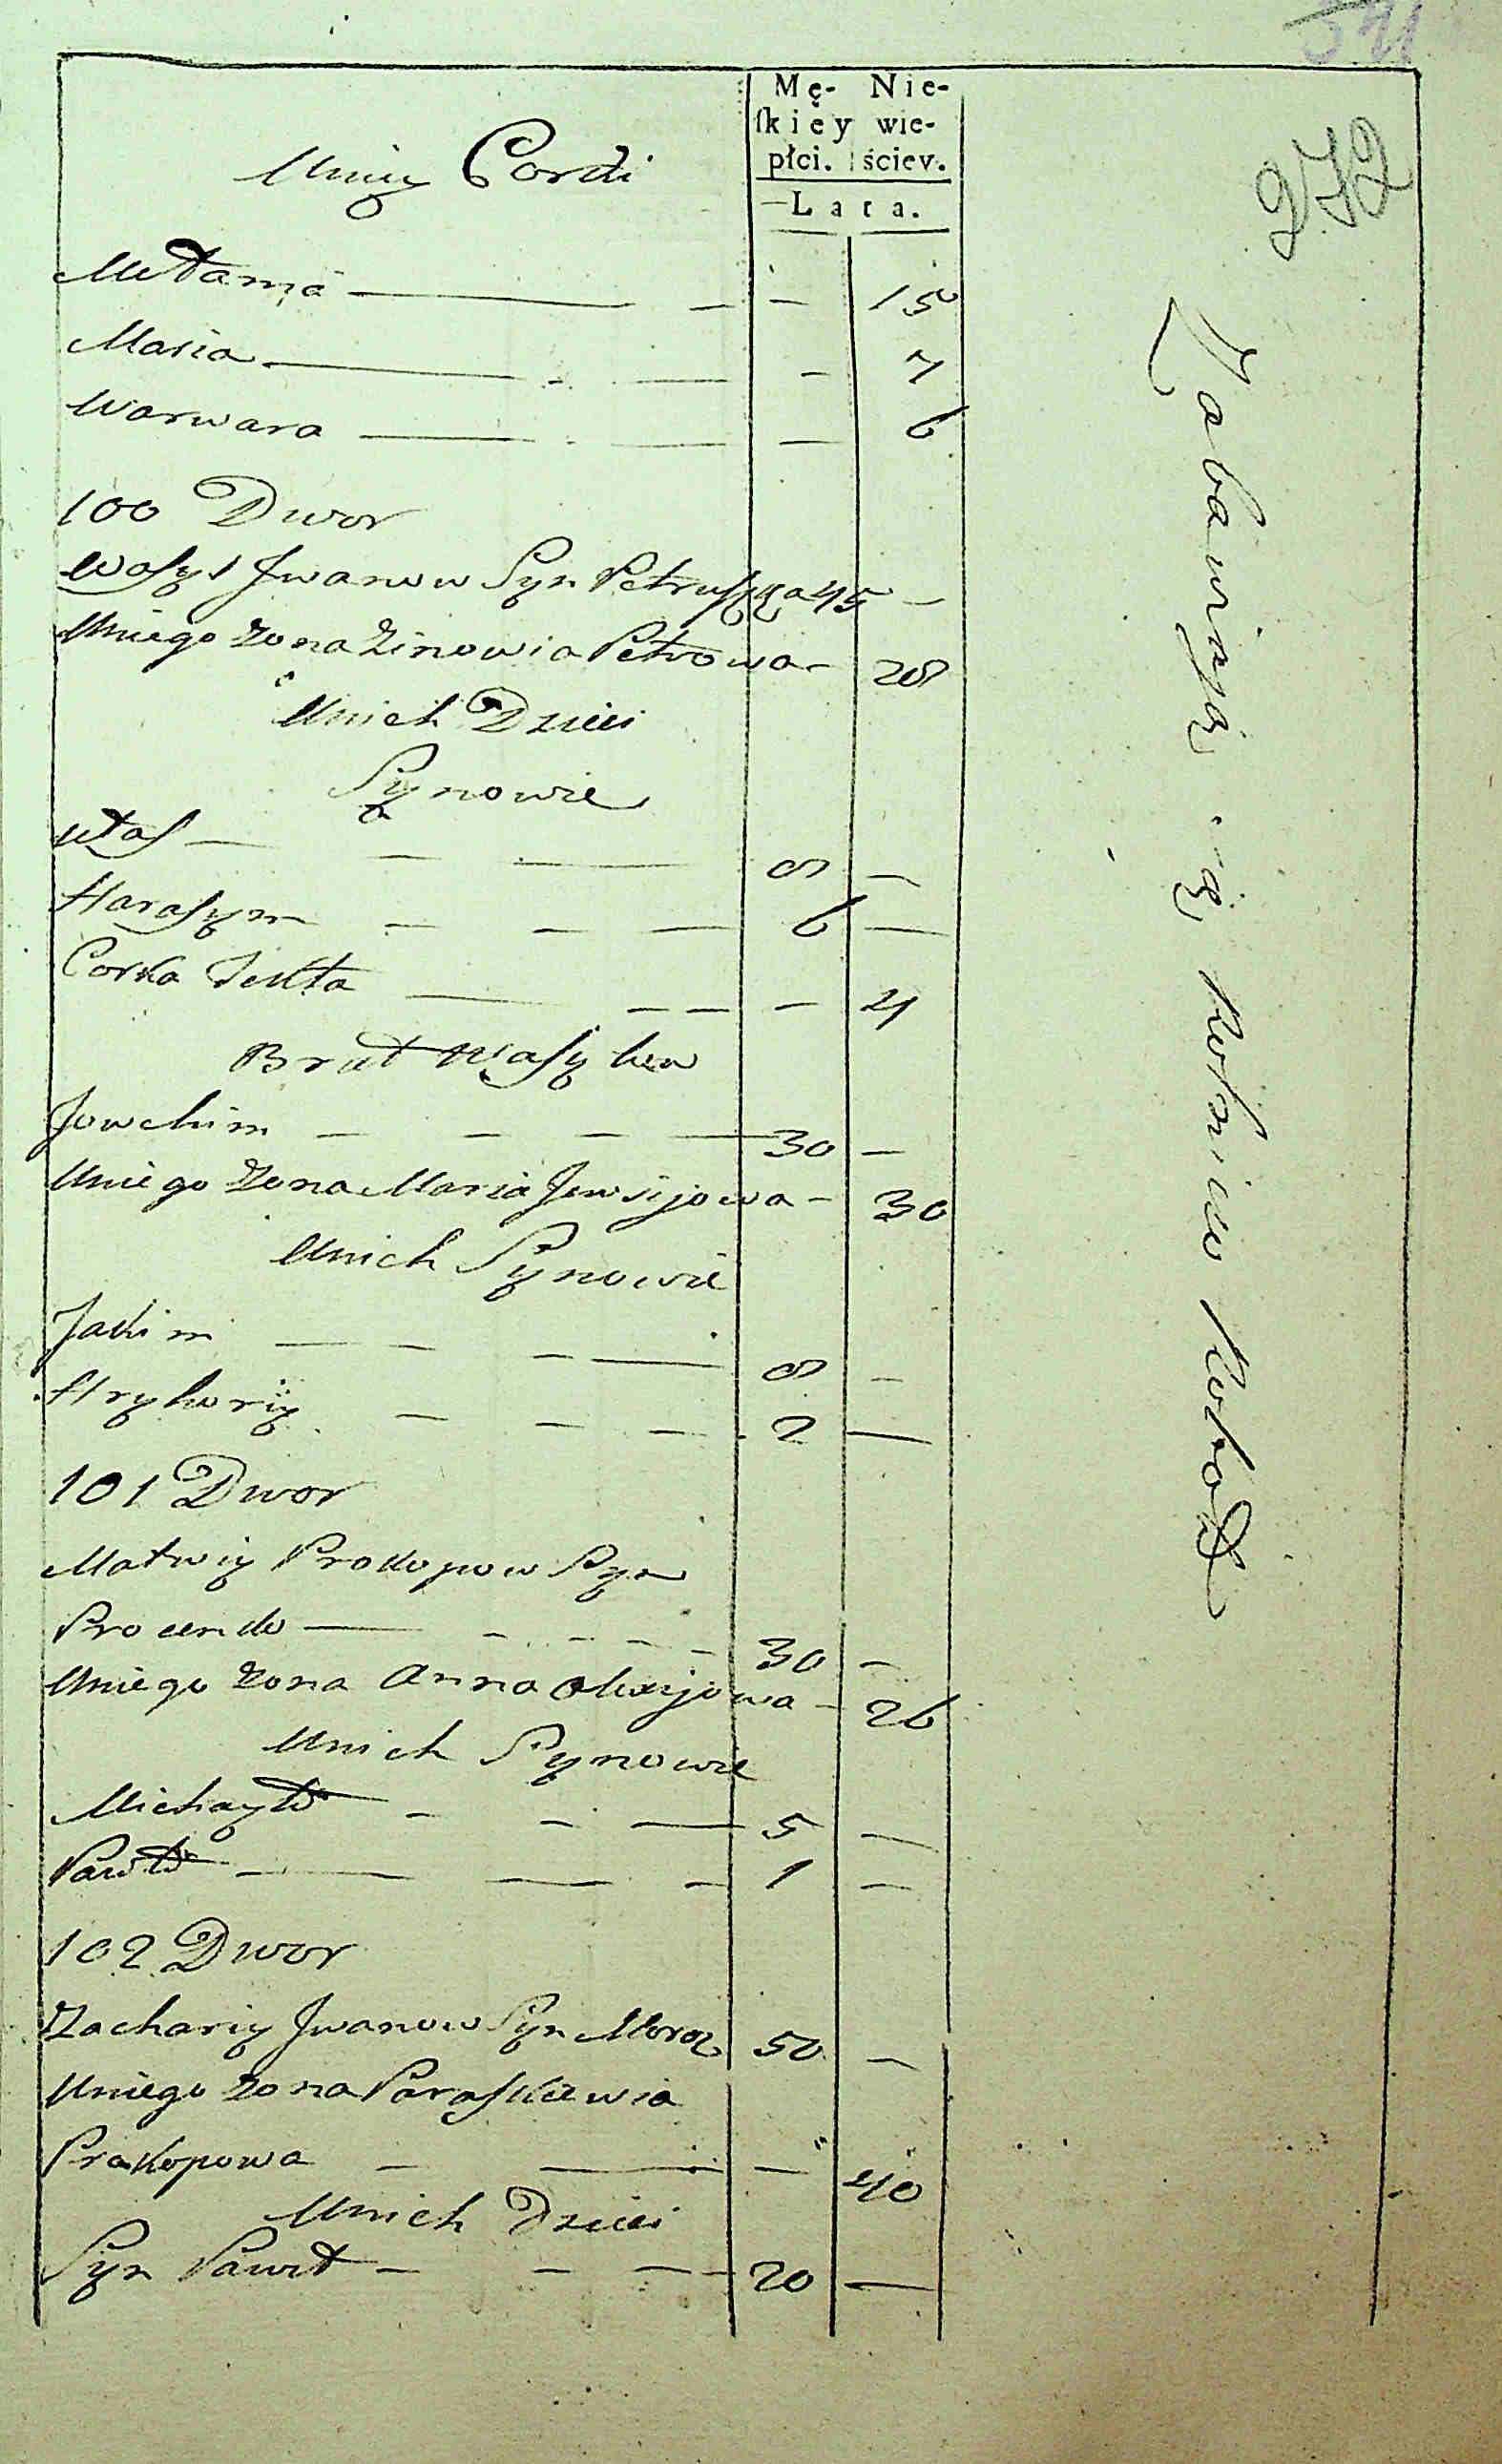 272
Mę- Nie-
ſkiey wie-
płci. ściey.
Lata.
Uniey Cordi
Mełania — — — 15
Maria — — — 7
Warwara — — — 6
100 Dwor
Wasyl Jwanow Syn Petruszka 45 —
Uniego Zona Zinowia Petrowa — 28
Unich Dzieci
Synowie
Własz — — — 8 —
Harasym — — — 6 —
Corka Tekla — — — — 4
Brat Wasylow
Jowchim — — — — 30 —
Uniego Zona Maria Jewsijowa — 30
Unich Synowie
Jakim — — — — 8 —
Hryhoriy — — — 2 —
101 Dwor
Matwiy Prokopow Syn
Procenko — — — — — 30 —
Uniego Zona Anna Olexijowa — 26
Unich Synowie
Michayło — — — 5 —
Pawło — — — 1 —
102 Dwor
Zachariy Jwanow Syn Moroz 50 —
Uniego Zona Paraskiewia
Prokopowa — — — 40
Unich Dzieci
Syn Paweł — — — — 20 —
Zabawiają się Rolnictwo Robotą